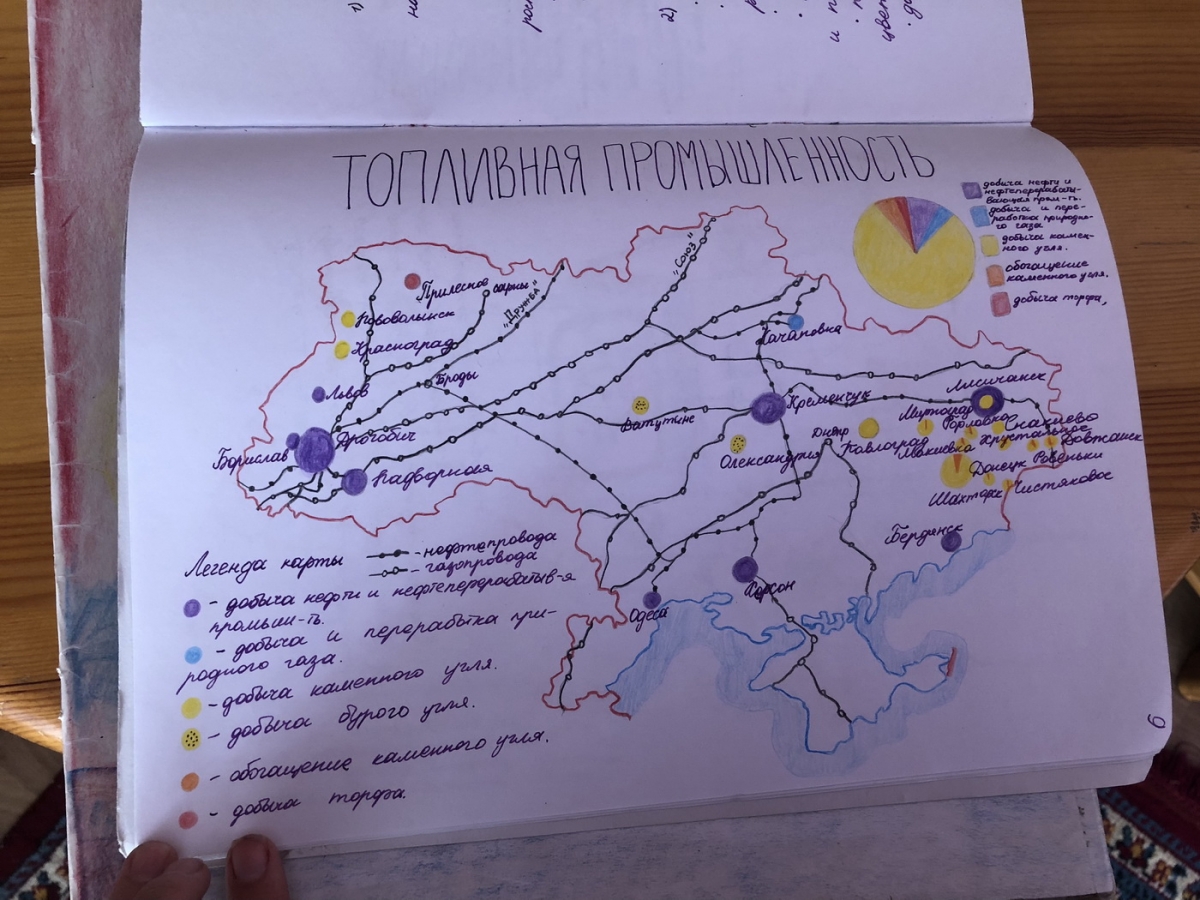 1)
2)
ТОПЛИВНАЯ ПРОМЫШЛЕННОСТЬ
добыча нефти и
нефтеперерабаты-
вающая пром-ть.
добыча и пере-
работка природно-
го газа
добыча камен-
ного угля.
обогащение
каменного угля.
добыча торфа,
"Союз"
"Дружба"
Прилесное
сарны
Нововолынск
Красноград
Львов
Броды
Качановка
Борислав
Дрогобич
Надворная
Ватутине
Кременчук
Олександрия
Днепр
Павлоград
Лисичанск
Мирноград
Горловка
Снажнево
Макиевка
Хрустальное
Довжанск
Донецк
Ровеньки
Шахторск
Чистяковое
Бердянск
Херсон
Одеса
Легенда карты
- нефтепровода
- газопровода
- добыча нефти и нефтеперерабатыв-я
промышл-ть.
- добыча и перерабытка при-
родного газа.
- добыча каменного угля.
- добыча бурого угля.
- обогащение каменного угля.
- добыча торфа.
6